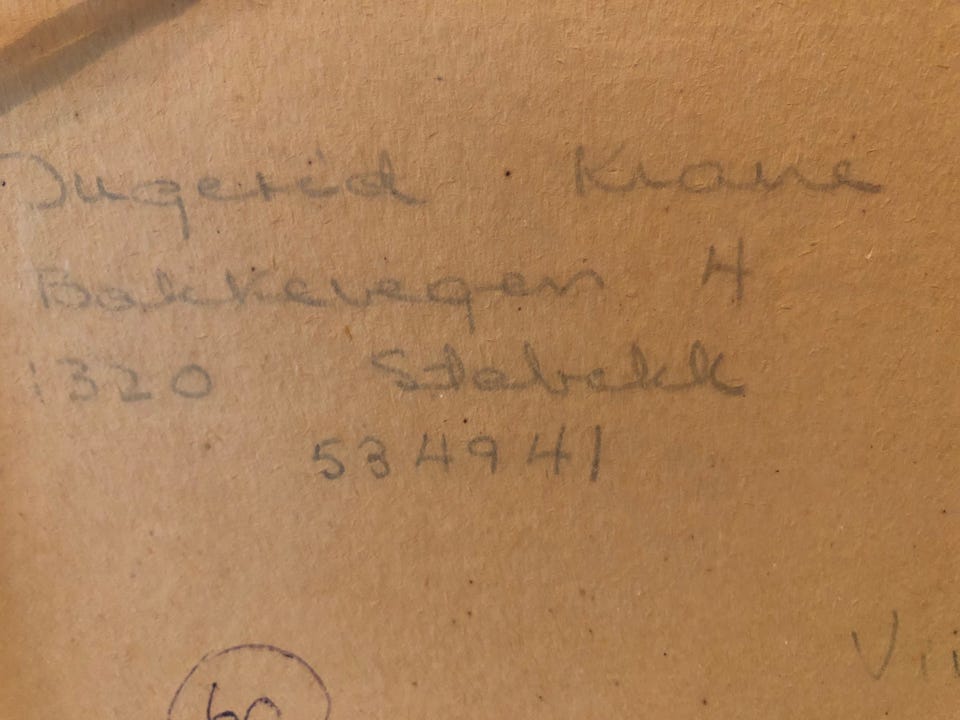 Ingerid Krane
Bakkevegen 4
1320 Stabekk
534941
60